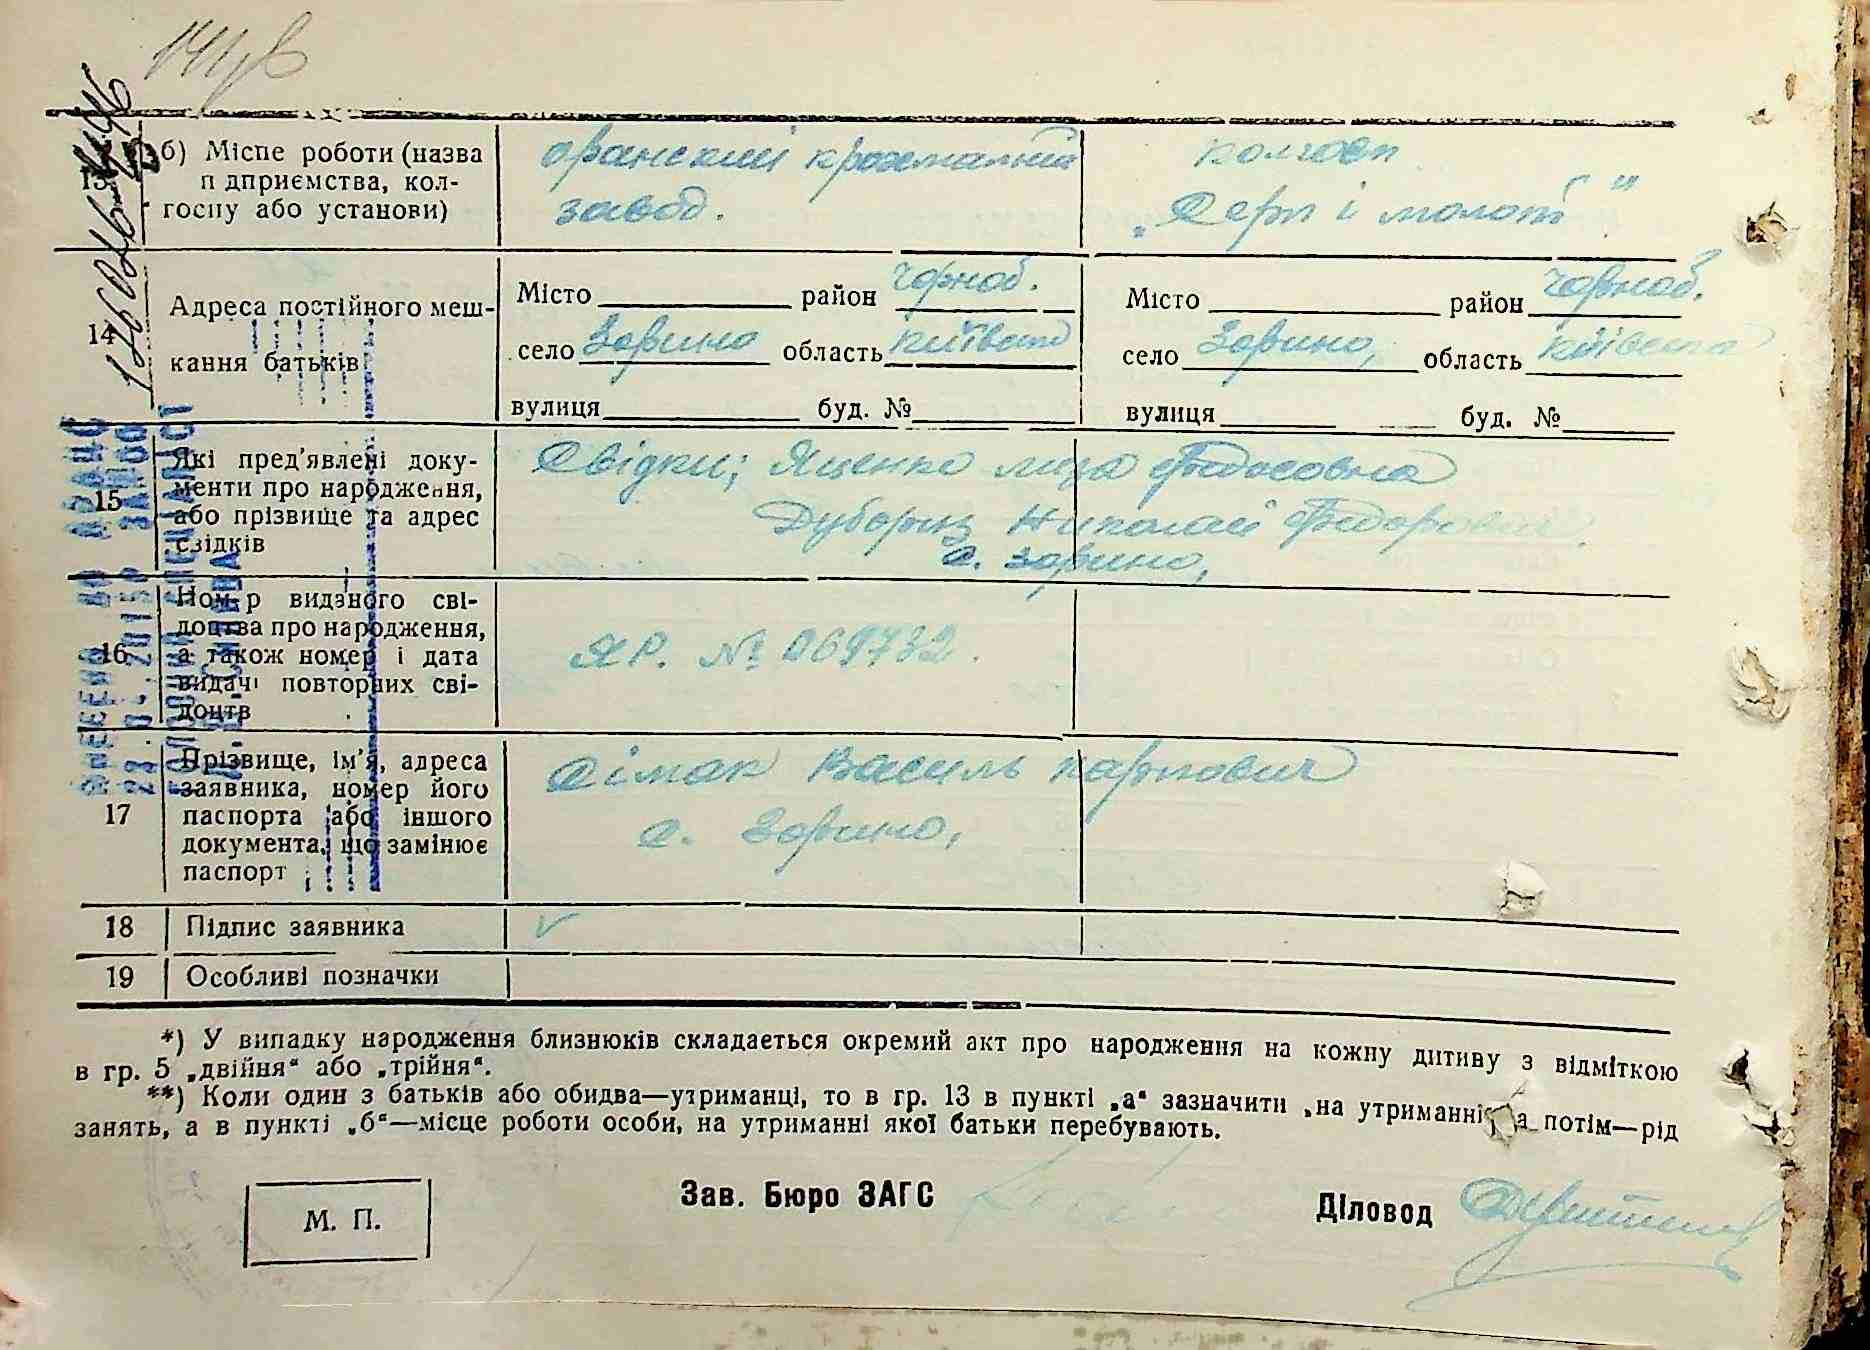 141 зв
13
б) Місце роботи (назва
п дприємства, кол-
госпу або установи)
оранский крохмальний
завод.
колгосп
„Серп і молот"
14
Адреса постійного меш-
кання батьків
Місто район Чорноб.
село Зорино область Київська
вулиця буд. №
Місто район Чорноб.
село Зорино, область Київська
вулиця буд. №
15
Які пред'явлені доку-
менти про народження,
або прізвище та адрес
свідків
Свідки; Яценко Лиза Федосовна
Николай Федорович
с. Зорино,
16
Номер виданого сві-
доцтва про народження,
а також номер і дата
видачі повторних сві-
доцтв
ЯР. № 069732.
17
Прізвище, ім'я, адреса
заявника, номер його
паспорта або іншого
документа, що замінює
паспорт
Сімак Василь Карпович
с. Зорино,
18 Підпис заявника
19 Особливі позначки
*) У випадку народження близнюків складається окремий акт про народження на кожну дитину з відміткою
в гр. 5 „двійня" або „трійня".
**) Коли один з батьків або обидва—утриманці, то в гр. 13 в пункті „а" зазначити „на утриманні, а потім—рід
занять, а в пункті „б"—місце роботи особи, на утриманні якої батьки перебувають.
М. П.
Зав. Бюро ЗАГС
Діловод